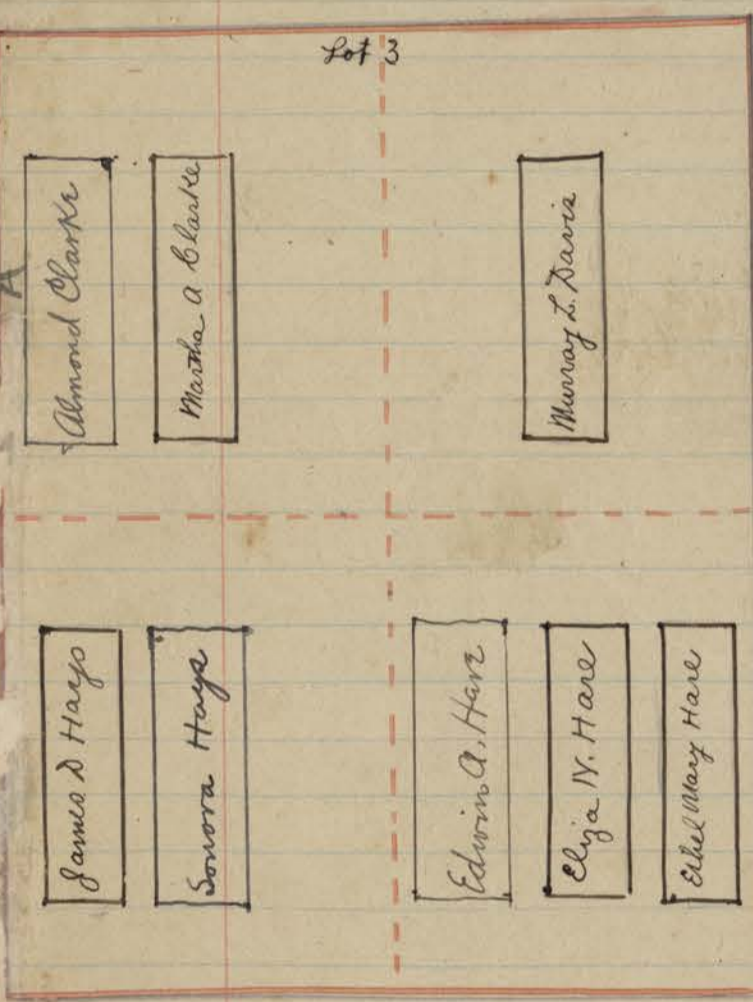 Lot 3
A
Almond Clarke
Martha A Clarke
Murray L. Davis
James D Hays
Sonora Hays
Edwin A. Hare
Eliza W. Hare
Ethel Mary Hare